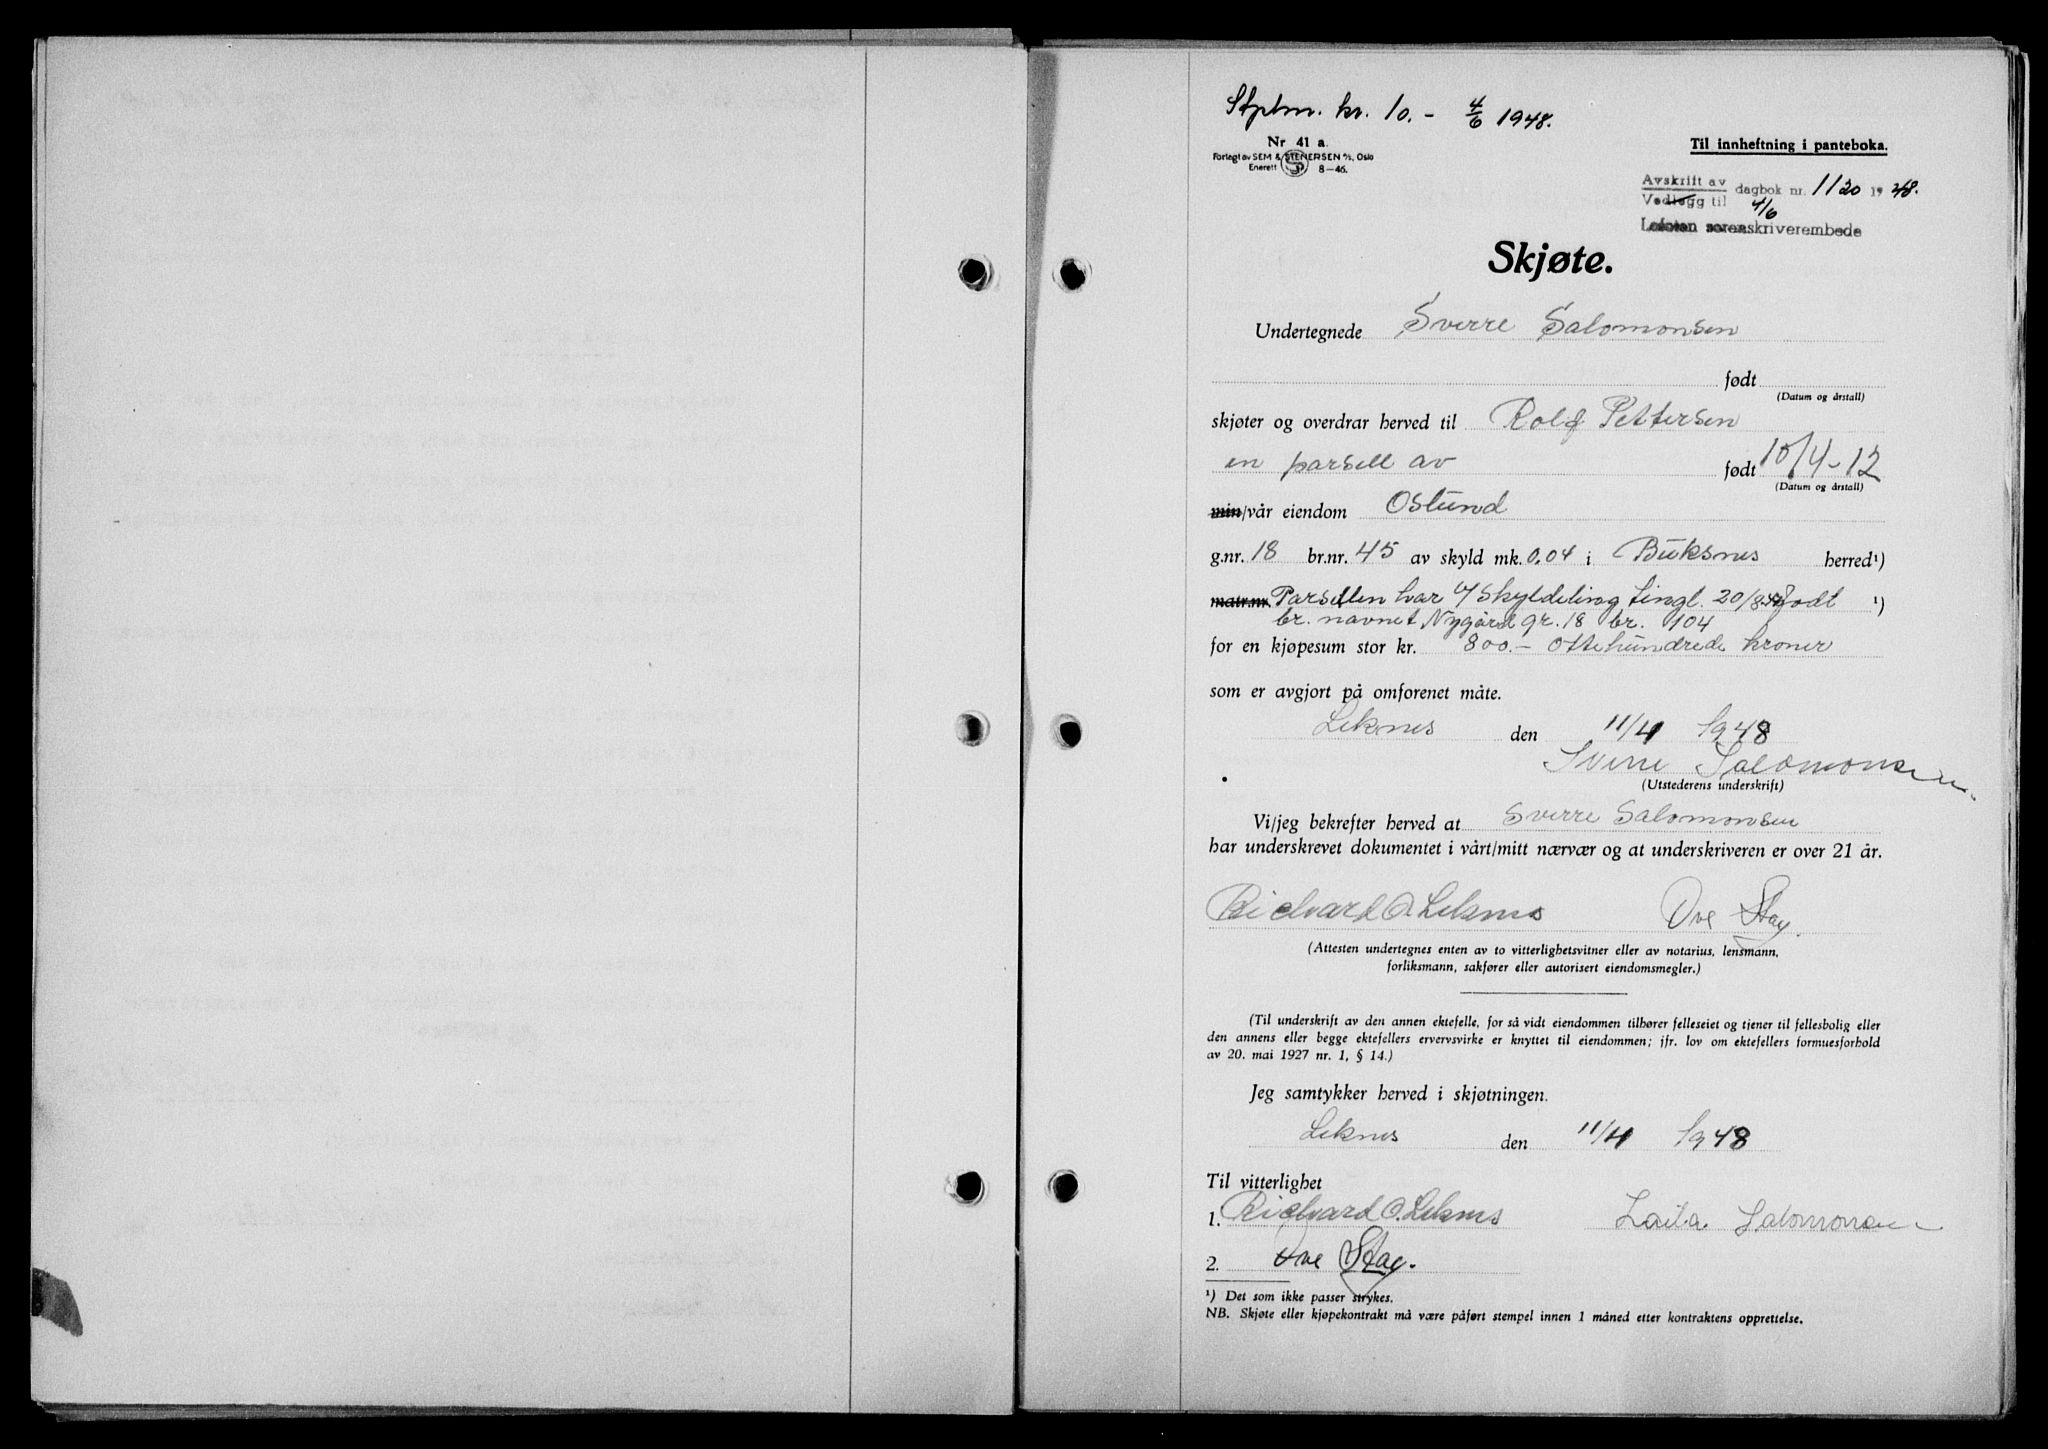 Stplm. kr. 10.- 4/6 1948.
Nr 41 a.
Forlagt av SEM & STENERSEN A/S, Oslo
Enerett 8-46.
Til innheftning i panteboka.
Avskrift av
Vedlegg til dagbok nr. 1120 1948.
4/6
Lofoten sorenskriverembede
Skjøte.
Undertegnede Sverre Salomonsen
født
(Datum og årstall)
skjøter og overdrar herved til Rolf Pettersen
en parsell av født 10/4-12
(Datum og årstall)
min/vår eiendom Oslund
g.nr. 18 br.nr. 45 av skyld mk. 0.04 i Buksnes herred¹)
matr.nr. Parsellen har v/ skylddeling tingl. 20/8-47 godt ¹)
br. navnet Nygård gr. 18 br. 104
for en kjøpesum stor kr. 800.- Ottehundrede kroner
som er avgjort på omforenet måte.
Leknes den 11/4 1948
Sverre Salomonsen
(Utstederens underskrift)
Vi/jeg bekrefter herved at Sverre Salomonsen
har underskrevet dokumentet i vårt/mitt nærvær og at underskriveren er over 21 år.
Richard O. Leknes Ove Stay.
(Attesten undertegnes enten av to vitterlighetsvitner eller av notarius, lensmann,
forliksmann, sakfører eller autorisert eiendomsmegler.)
(Til underskrift av den annen ektefelle, for så vidt eiendommen tilhører felleseiet og tjener til fellesbolig eller
den annens eller begge ektefellers ervervsvirke er knyttet til eiendommen; jfr. lov om ektefellers formuesforhold
av 20. mai 1927 nr. 1, § 14.)
Jeg samtykker herved i skjøtningen.
Leknes den 11/4 1948
Til vitterlighet
1. Richard O. Leknes Laila Salomonsen
2. Ove Stay.
¹) Det som ikke passer strykes.
NB. Skjøte eller kjøpekontrakt må være påført stempel innen 1 måned etter kontraktens opprettelse.